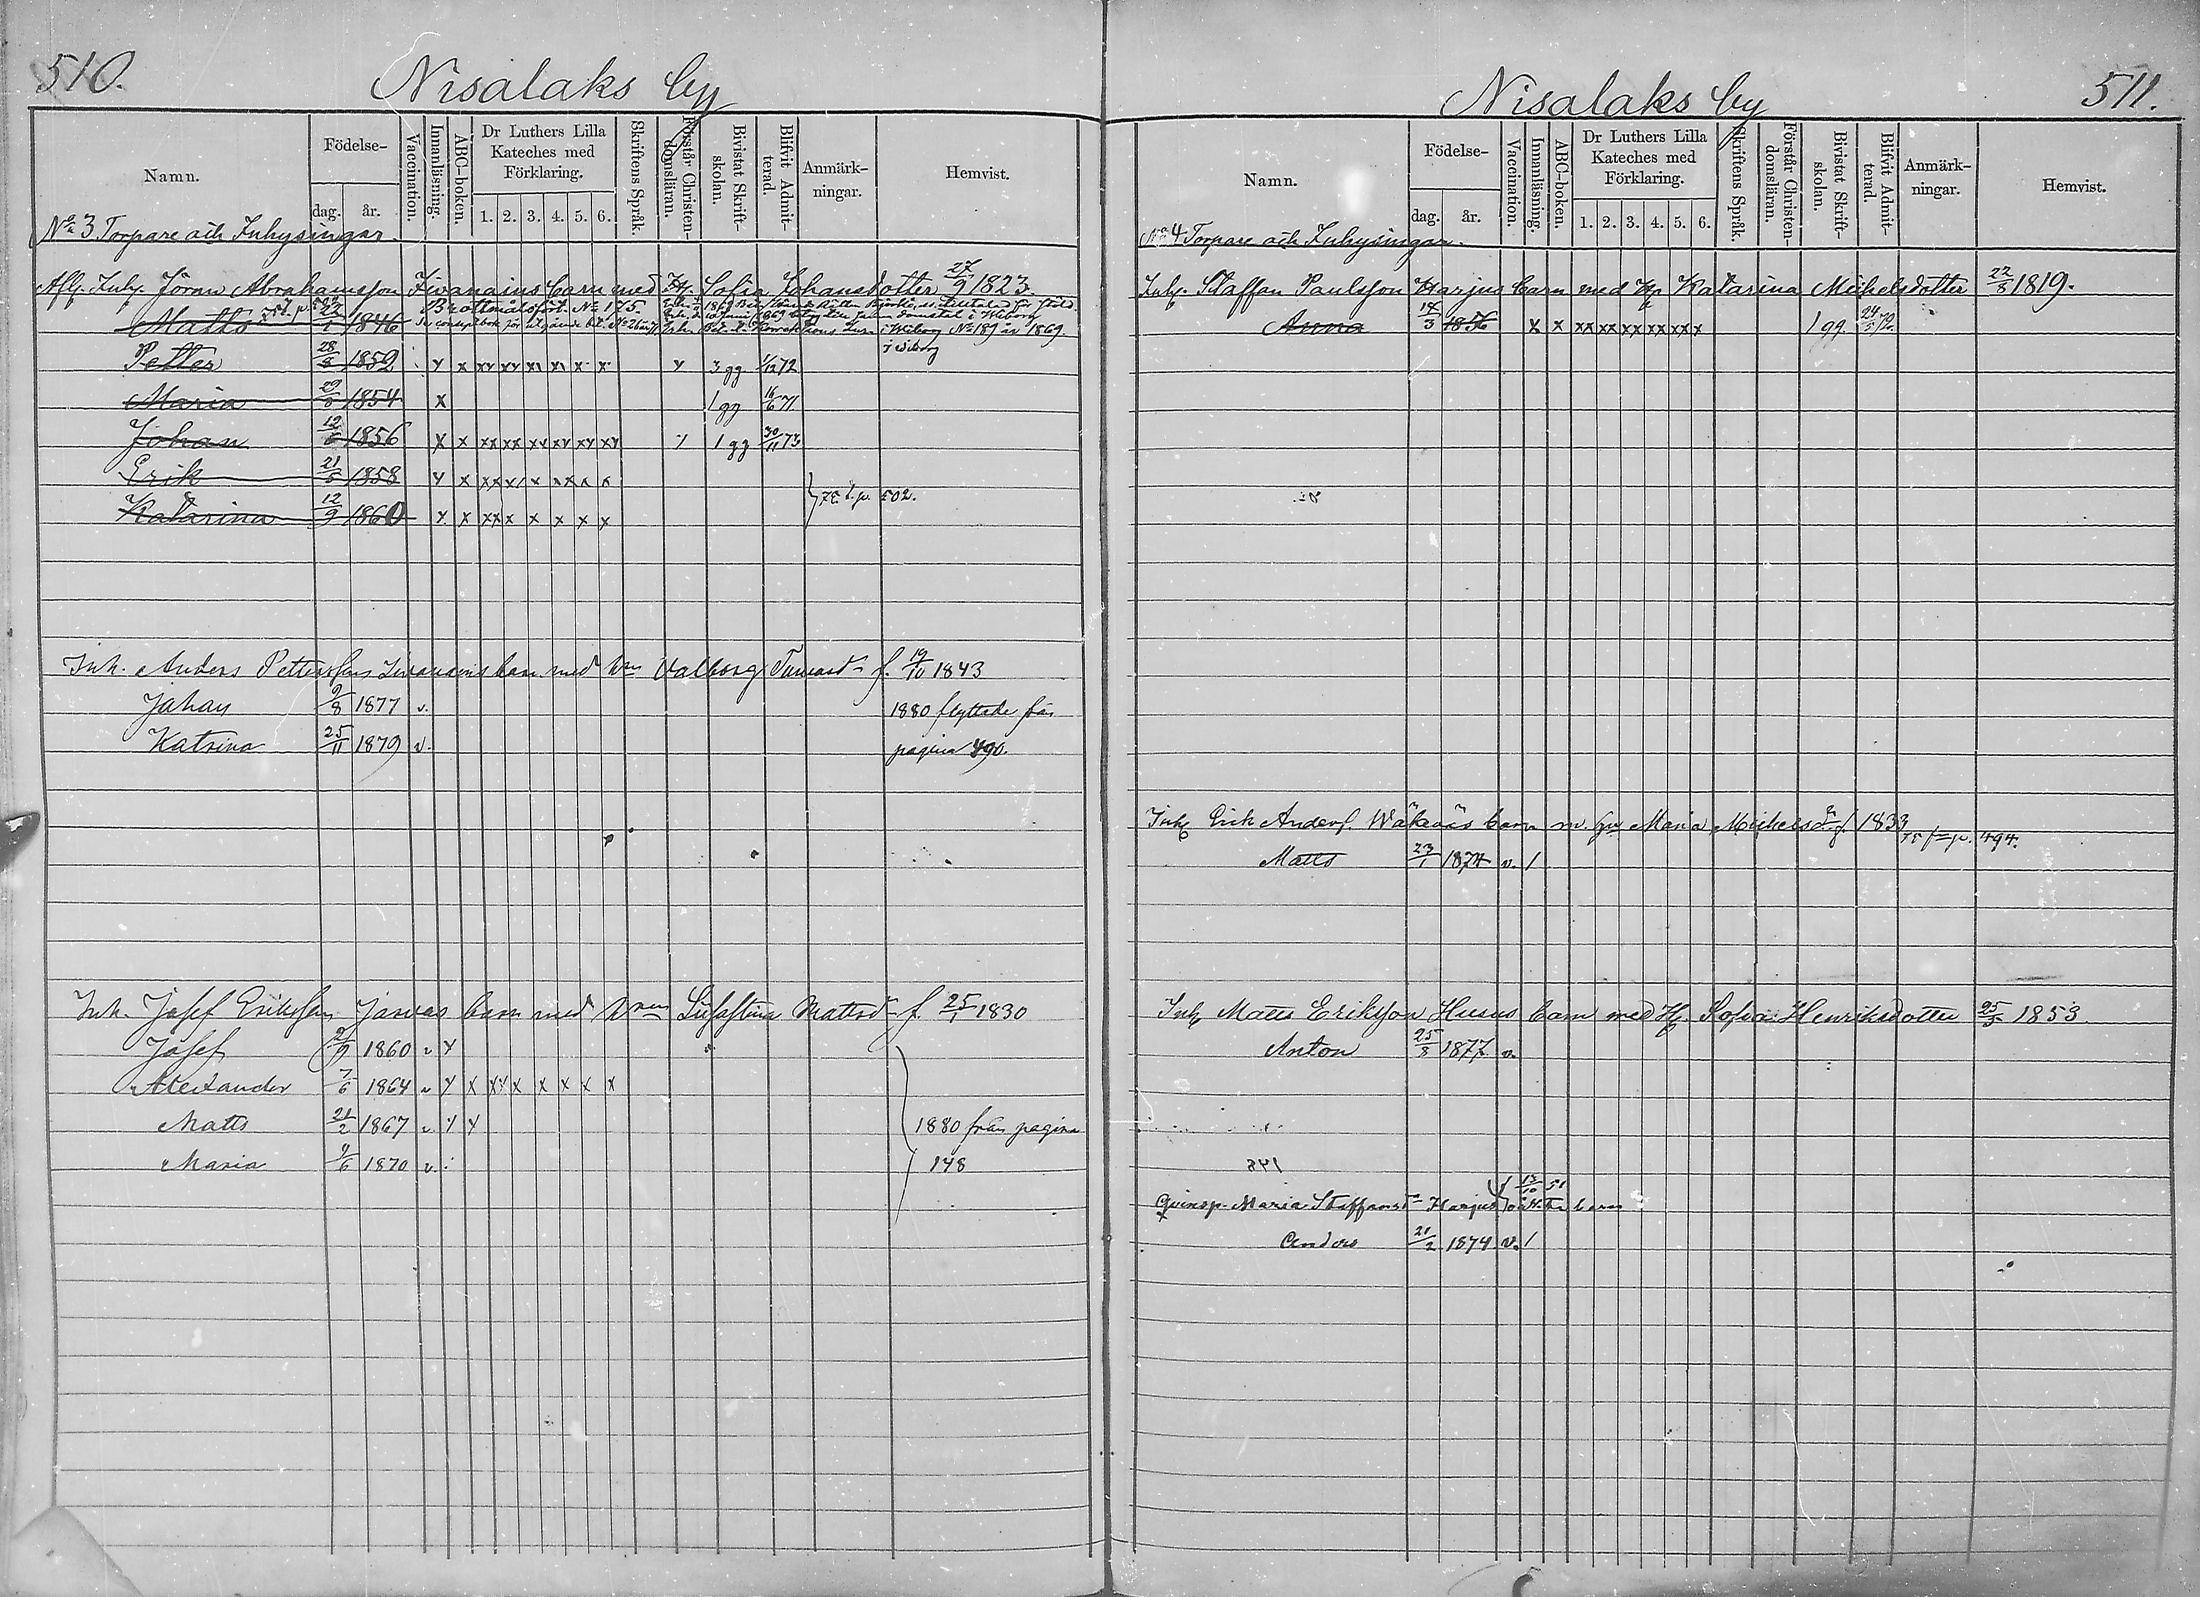 510.
Nisalaks by
Namn.
Födelse-
dag.
år.
Vaccination.
Innanläsning.
ABC-boken.
Dr Luthers Lilla
Kateches med
Förklaring.
1. 2. 3. 4. 5. 6.
Skriftens Språk.
Förstår Christen-
domsläran.
Bivistat Skrift-
skolan.
Blifvit Admit-
terad.
Anmärk-
ningar.
Hemvist.
No 3 Torpare och Inhysingar.
Afl. Inh. Jöran Abrahamsson Iivanains barn med H. Sofia Johansdotter 27/9 1823.
Brottmålsfört. No 175.
Matts 22/1 1846 i Wiborg No 189 år 1869.
Petter 28/8 1852 x x xx xx x x x x x 3 gg 1/12 72 i Wiborg
Maria 29/8 1854 x 1 gg 16/6 71
Johan 12/6 1856 x x xx xx xx xx xx xx 1 gg 30/11 73
Erik 21/5 1858 x x xx x x x x x
Katarina 12/9 1860 x x xx x x x x x 75 t. p. 502.
Inh. Anders Pettersson Iivanains barn med Hm Valborg f. 19/10 1843
Johan 9/8 1877 v. 1880 flyttade från
Katrina 25/11 1879 v. pagina 490.
Inh. Josef Eriksson Jarvas barn med Matsd f. 25/1 1830
Josef 1860 v x
Alexander 7/6 1864 v x x xx x x x x x
Matts 21/2 1867 v x x 1880 från pagina
Maria 9/6 1870 v. 148
Nisalaks by
511.
Namn.
Födelse-
dag.
år.
Vaccination.
Innanläsning.
ABC-boken.
Dr Luthers Lilla
Kateches med
Förklaring.
1. 2. 3. 4. 5. 6.
Skriftens Språk.
Förstår Christen-
domsläran.
Bivistat Skrift-
skolan.
Blifvit Admit-
terad.
Anmärk-
ningar.
Hemvist.
No 4 Torpare och Inhysingar.
Inh. Staffan Paulsson Harjus barn med H Katarina Michelsdotter 22/8 1819.
Anna 1856 x x xx xx xx xx x x 1 gg. 24/5 72
Inh Erik Anders. Wäkeväs barn m. Maria Mickelsd f. 1833 75 p. 494.
Matts 23/1 1874 v. /
Inh Matts Eriksson Husus barn med H. Sofia Henriksdotter 25/5 1853
Anton 25/8 1877 v.
f 13/10 51
Qvinsp. Maria Staffansd Harjus oäkta barn
Anders 21/2 1874 v. /